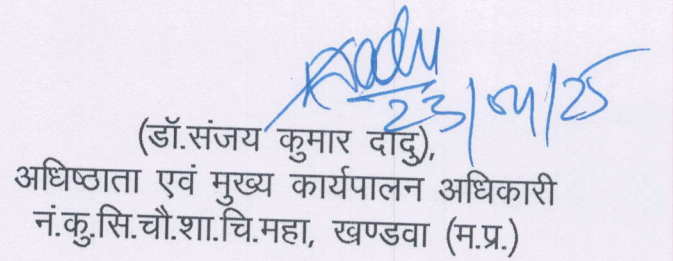 Dadu
23/04/25
(डॉ.संजय कुमार दादु),
अधिष्ठाता एवं मुख्य कार्यपालन अधिकारी
नं.कु.सि.चौ.शा.चि.महा, खण्डवा (म.प्र.)